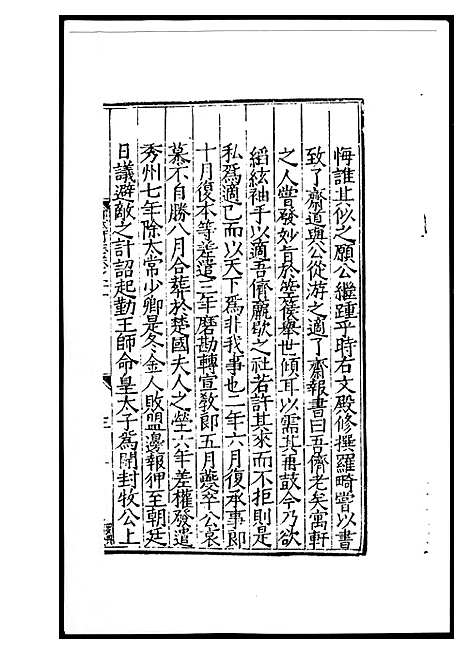 悔誰其似之願公繼踵乎時右文殿修撰羅畸嘗以書
致了齋道與公從游之適了齋報書曰吾儕老矣寓軒
之人嘗發妙旨於箜篌舉世傾耳以需其再鼓今乃欲
縚絃袖手以適吾儕覊歌之社若許其來而不拒則是
私爲適已而以天下爲非我事也二年六月復承事郎
十月復本等差遣三年磨勘轉宣敎郎五月䕫卒公哀
慕不自勝八月合葬於楚國夫人之塋六年差權發遣
秀州七年除太常少卿是冬金人敗盟邊報狎至朝廷
日議避敵之計詔起勤王師命皇太子爲開封牧公上